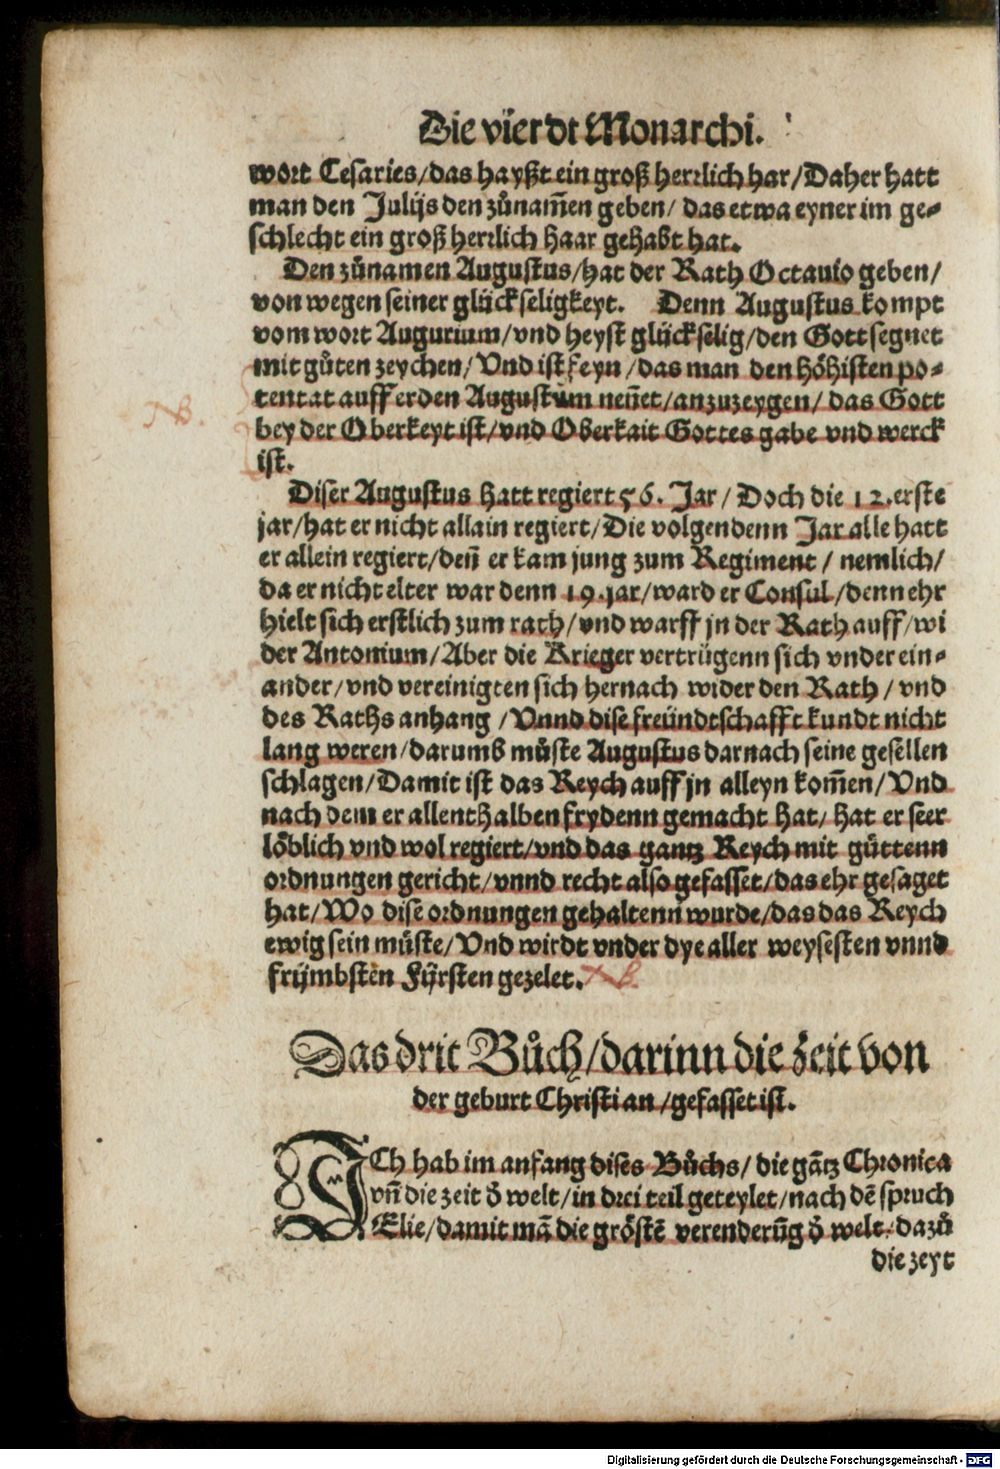 Die vierdt Monarchi.
wort Cesaries/das hayßt ein groß herrlich har/Daher hatt
man den Julijs den zůnam̃en geben/ das etwa eyner im ge⸗
schlecht ein groß herrlich haar gehabt hat.
Den zůnamen Augustus/hat der Rath Octauio geben/
von wegen seiner glückseligkeyt. Denn Augustus kompt
vom wort Augurium/vnd heyst glückselig/den Gott segnet
mit gůten zeychen/ Vnd ist feyn/das man den höhisten po⸗
tentat auff erden Augustum neñet/anzuzeygen/ das Gott
bey der Oberkeyt ist/vnd Oberkait Gottes gabe vnd werck
ist.
Diser Augustus hatt regiert 56. Jar/ Doch die 12. erste
jar/hat er nicht allain regiert/Die volgendenn Jar alle hatt
er allein regiert/deñ er kam jung zum Regiment/ nemlich/
da er nicht elter war denn 19. jar/ward er Consul/denn ehr
hielt sich erstlich zum rath/vnd warff jn der Rath auff/wi
der Antonium/Aber die Krieger vertrůgenn sich vnder ein⸗
ander/vnd vereinigten sich hernach wider den Rath/ vnd
des Raths anhang/Vnnd dise freündtschafft kundt nicht
lang weren/darumb můste Augustus darnach seine gesellen
schlagen/Damit ist das Reych auff jn alleyn kom̃en/Vnd
nach dem er allenthalben frydenn gemacht hat/ hat er seer
löblich vnd wol regiert/vnd das gantz Reych mit gůttenn
ordnungen gericht/vnnd recht also gefasset/das ehr gesaget
hat/Wo dise ordnungen gehaltenn wurde/das das Reych
ewig sein můste/Vnd wirdt vnder dye aller weysesten vnnd
frijmbsten Fijrsten gezelet. NB.
NB.
Das drit Bůch/darinn die zeit von
der geburt Christi an/gefasset ist.
ICh hab im anfang dises Bůchs/ die gãtz Chronica
vñ die zeit d̾ welt/in drei teil geteylet/nach dẽ spruch
Elie/damit mã die gröstẽ verenderũg d̾ welt/dazů
die zeyt
Digitalisierung gefördert durch die Deutsche Forschungsgemeinschaft - DFG